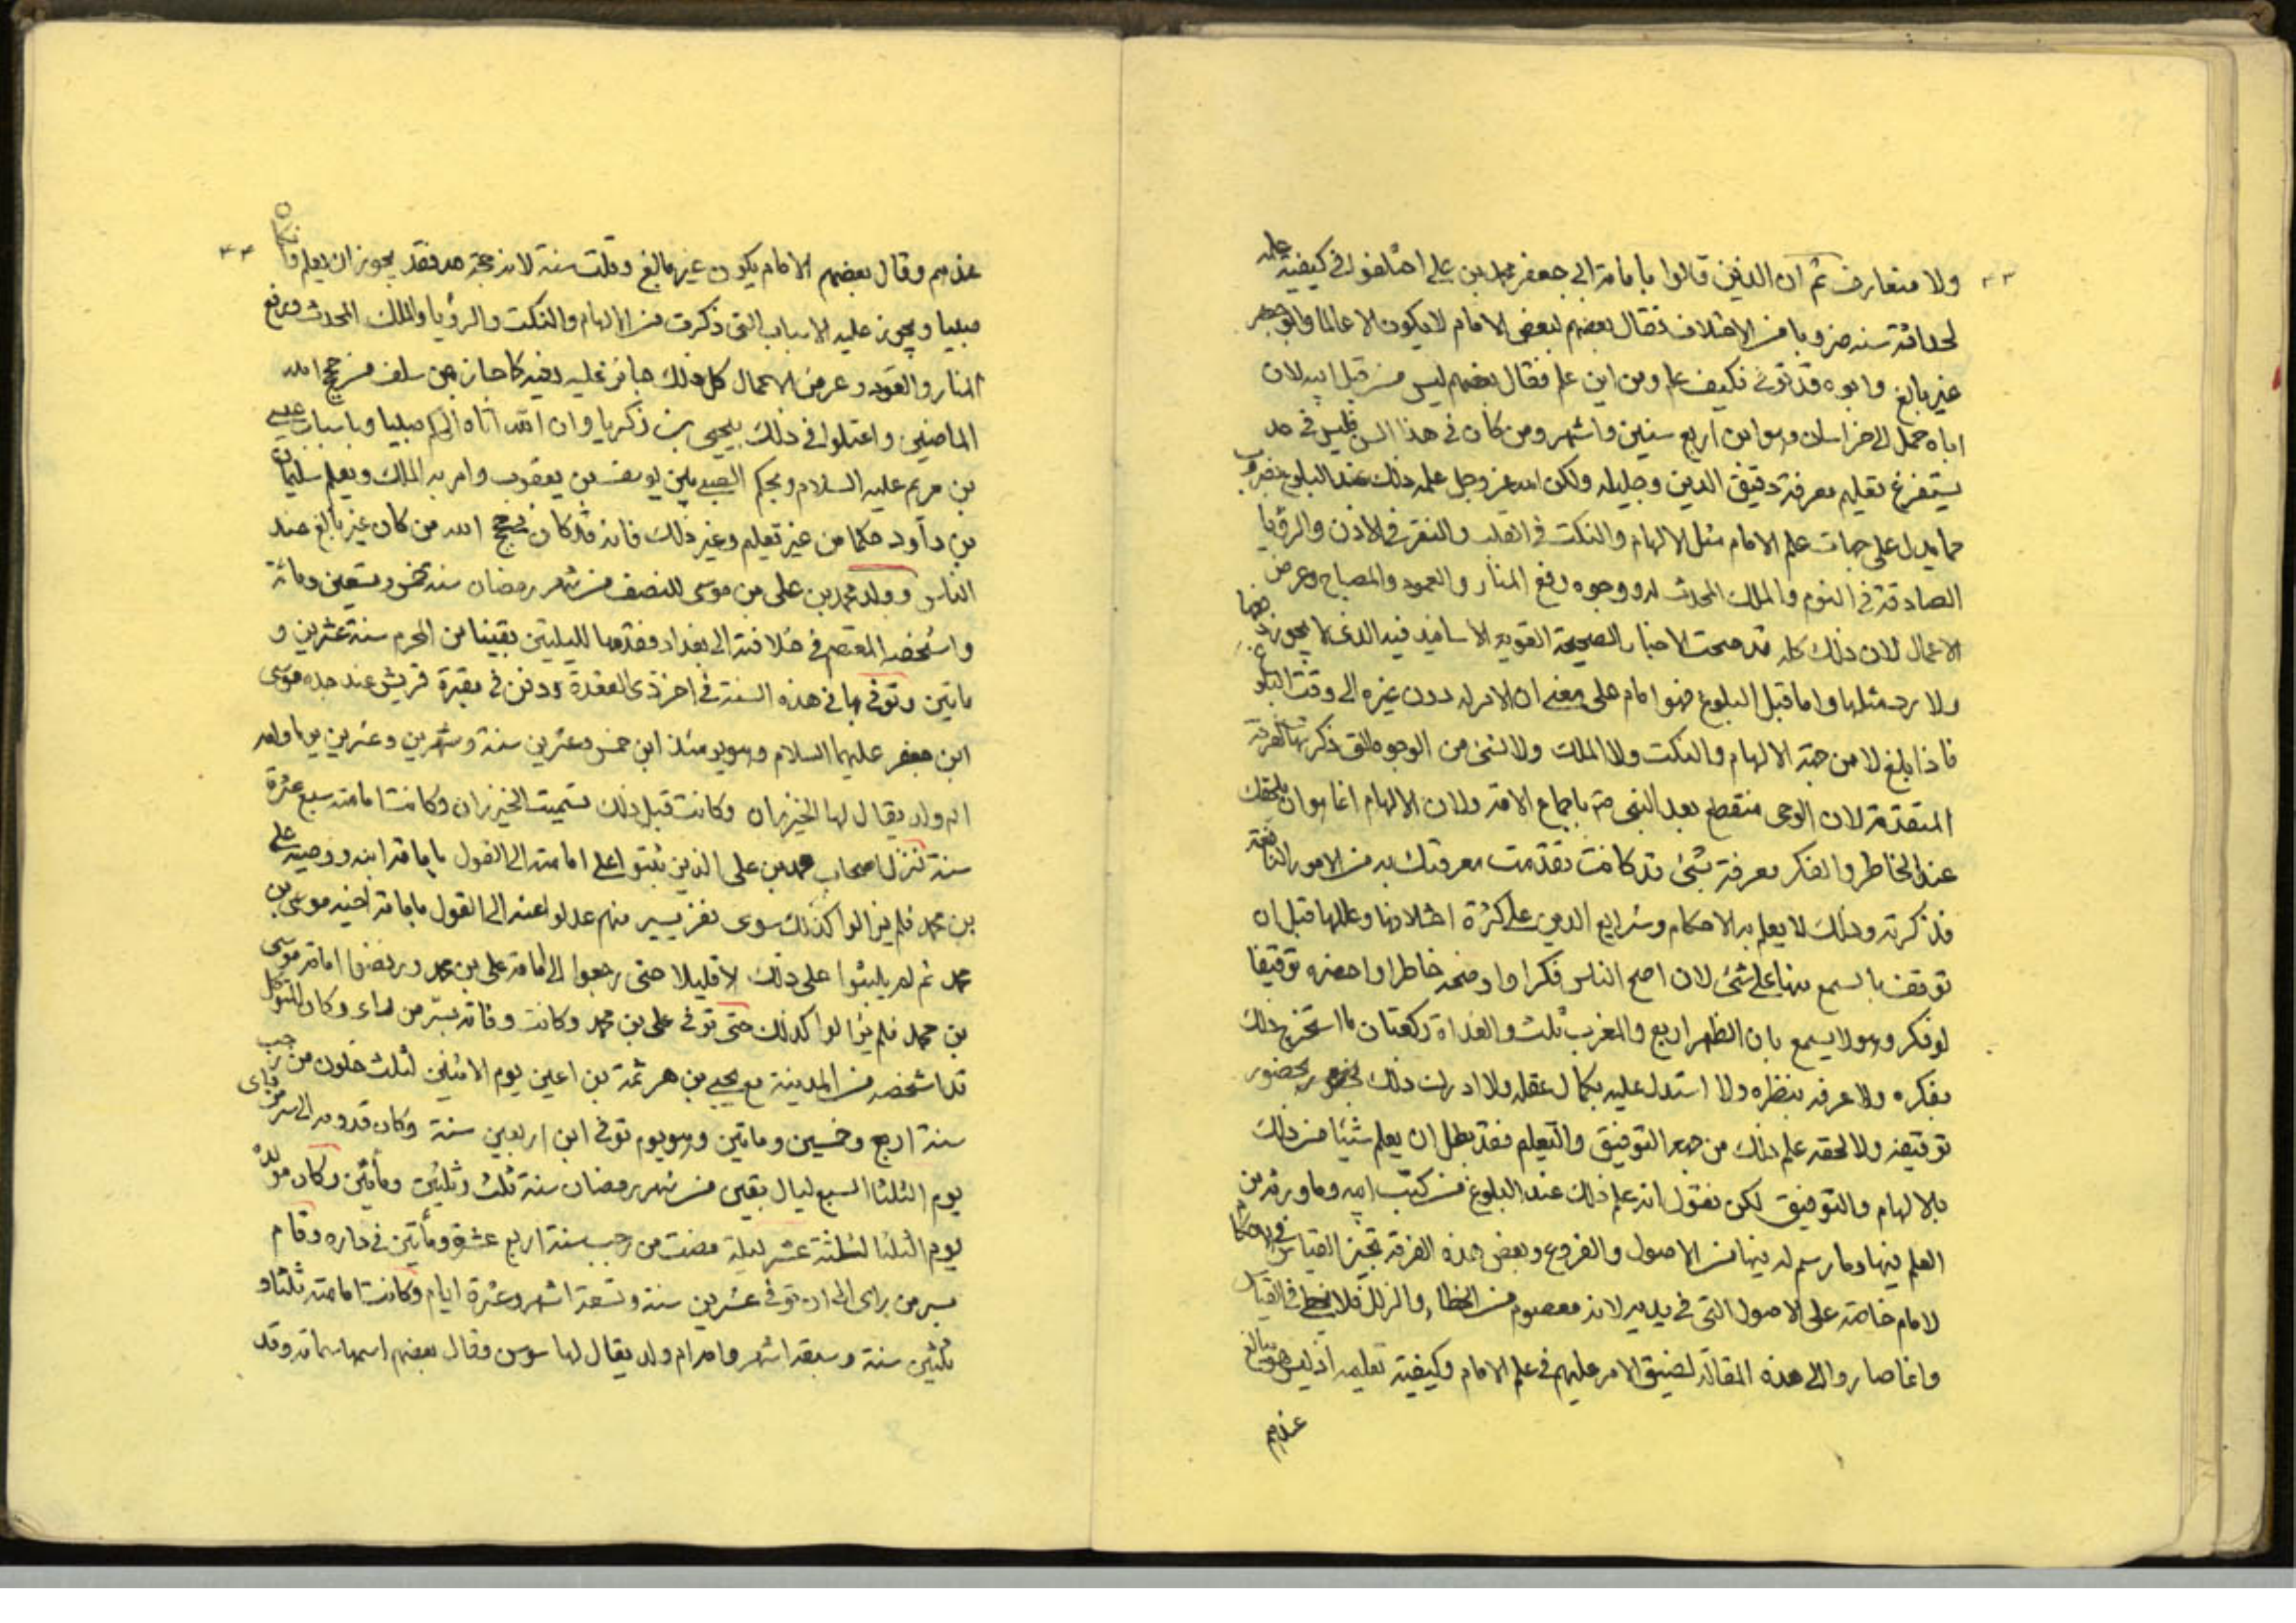 ٤٣
ولا متعارف ثم ان الذين قالوا بامامة ابى جعفر محمد بن على اختلفوا فى كيفية علمه
لحداثة سنه ضروبا من الاختلاف فقال بعضهم لبعض الامام لا يكون الا عالما وابو جعفر
غير بالغ وابوه قد توفى فكيف علم ومن اين علم فقال بعضهم ليس من قبل ابيه لان
اباه حمل الى خراسان وهو ابن اربع سنين واشهر ومن كان فى هذا السن فليس فى حد
يستفرغ تعليم معرفة دقيق الدين وجليله ولكن الله عز وجل علمه ذلك عند البلوغ بضروب
مما يدل على جهات علم الامام مثل الالهام والنكت فى القلب والنقر فى الاذن والرؤيا
الصادقة فى النوم والملك المحدث له ووجوه رفع المنار والعمود والمصباح وعرض
الاعمال لان ذلك كله قد صحت الاخبار الصحيحة القوية الاسانيد فيه الذى لا يجوز دفعها
ولا رد مثلها واما قبل البلوغ فهو امام على معنى ان الامر له دون غيره الى وقت البلوغ
فاذا بلغ لا من جهة الالهام والنكت ولا الملك ولا لشئ من الوجوه التى ذكرتها الفرقة
المتقدمة لان الوحى منقطع بعد النبى صم باجماع الامة ولان الالهام انما هو ان يلحقك
عند الخاطر والفكر معرفة بشئ قد كانت تقدمت معرفتك به من الامور النافعة
فذكرته وذلك لا يعلم به الاحكام وشرايع الدين على كثرة اختلافها وعللها قبل ان
توقف بالسمع منها على شئ لان اصح الناس فكرا واوضحه خاطرا واحضره توقيفا
لو فكر وهو لا يسمع بان الظهر اربع والمغرب ثلث والغداة ركعتان ما استخرج ذلك
بفكره ولا عرفه بنظره ولا استدل عليه بكمال عقله ولا ادرك ذلك بحضور
توقيفه ولا لحقه علم ذلك من جهة التوفيق والتعليم فقد بطل ان يعلم شيئا من ذلك
بالالهام والتوفيق لكن نقول انه علم ذلك عند البلوغ من كتب ابيه وما ورثه من
العلم فيها وما رسم له فيها من الاصول والفروع وبعض هذه الفرقة تجيز القياس فى الاحكام
لامام خاصة على الاصول التى فى يديه لانه معصوم من الخطاء والزلل فلا يخطى فى القياس
وانما صاروا الى هذه المقالة لضيق الامر عليهم فى علم الامام وكيفية تعليمه اذ ليس هو ببالغ
عندهم
٤٤
عندهم وقال بعضهم الامام يكون غير بالغ وقلت سنه لانه حجة الله فقد يجوز ان يعلم وان كان
صبيا ويجوز عليه الاسباب التى ذكرت من الالهام والنكت والرؤيا والملك المحدث ورفع
المنار والعمود وعرض الاعمال كل ذلك جائز عليه وفيه كما جاز عن سلف من حجج الله
الماضين واعتلوا فى ذلك بيحيى بن زكريا وان الله اتاه الحكم صبيا وباسباب عيسى
بن مريم عليه السلام وبحكم الصبى بين يوسف بن يعقوب وامرءة الملك وبعلم سليمان
بن داود حكما من غير تعليم وغير ذلك فانه قد كان فى حجج الله من كان غير بالغ عند
الناس وولد محمد بن على بن موسى للنصف من شهر رمضان سنة خمس وتسعين ومائة
واشخصه المعتصم فى خلافته الى بغداد فقدمها لليلتين بقيتا من المحرم سنة عشرين و
ماتين وتوفى بها فى هذه السنة فى اخر ذى القعدة ودفن فى مقبرة قريش عند جده موسى
ابن جعفر عليهما السلام وهو يومئذ ابن خمس وعشرين سنة وشهرين وعشرين يوما وامه
ام ولد يقال لها الخيزران وكانت قبل ذلك تسميت الخيزران وكانت امامته سبع عشرة
سنة فنزل اصحاب محمد بن على الذين ثبتوا على امامته الى القول بامامة ابنه ووصيه على
بن محمد فلم يزالوا كذلك سوى نفر يسير منهم عدلوا عنه الى القول بامامة اخيه موسى بن
محمد ثم لم يلبثوا على ذلك الا قليلا حتى رجعوا الى امامة على بن محمد ورفضوا امامة موسى
بن محمد فلم يزالوا كذلك حتى توفى على بن محمد وكانت وفاته بسر من راء وكان المتوكل
قد اشخصه من المدينة مع يحيى بن هرثمة بن اعين يوم الاثنين لثلث خلون من رجب
سنة اربع وخمسين وماتين وهو يوم توفى ابن اربعين سنة وكان قدومه الى سر من راى
يوم الثلثا لسبع ليال بقين من شهر رمضان سنة ثلث وثلثين ومأتين وكان مولده
يوم الثلثا لثلثة عشر ليلة مضت من رجب سنة اربع عشرة ومأتين فى داره وقام
بسر من راى الى ان توفى عشرين سنة وتسعة اشهر وعشرة ايام وكانت امامته ثلثا و
ثلثين سنة وسبعة اشهر وامه ام ولد يقال لها سوسن وقال بعضهم اسمها سمانة وقد